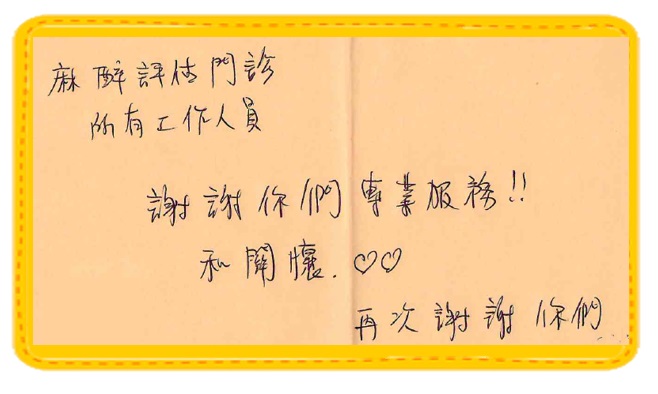 麻醉評估門診
所有工作人員
謝謝你們專業服務!!
和關懷.♡♡
再次謝謝你們